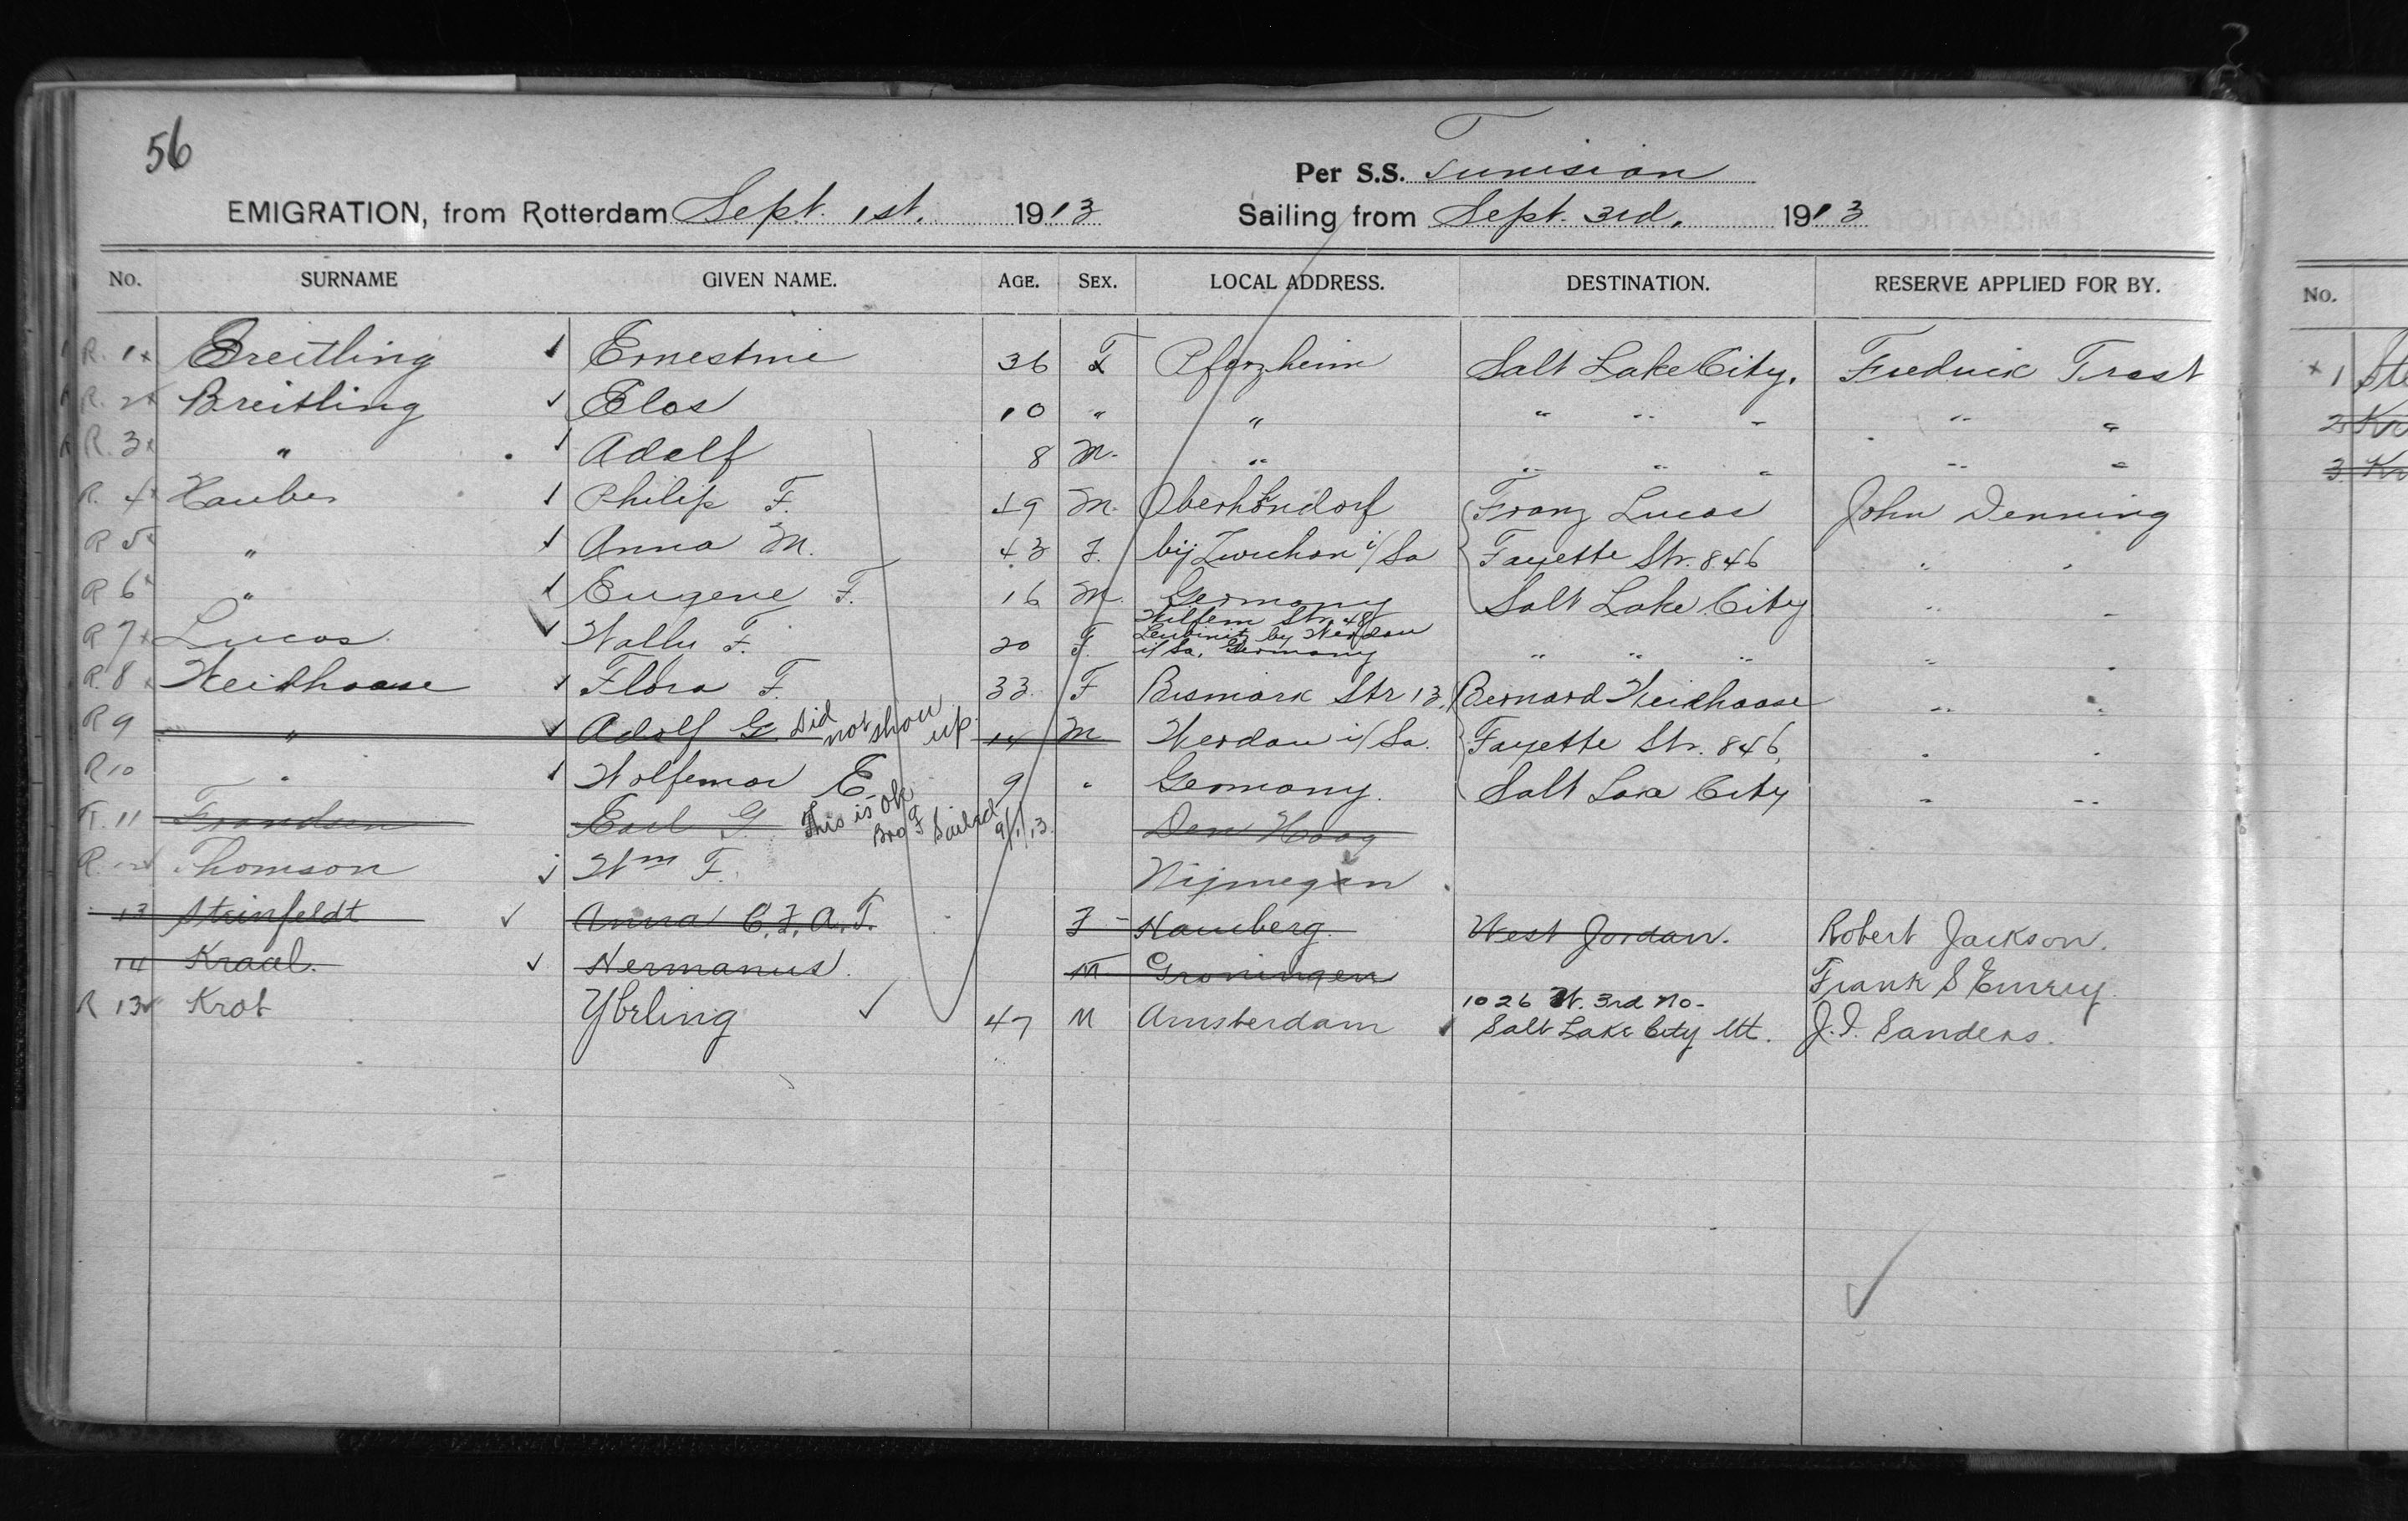 56
Per S.S. Tunisian
EMIGRATION, from Rotterdam Sept. 1st. 1913 Sailing from Sept. 3rd, 1913
No. SURNAME GIVEN NAME. AGE. SEX. LOCAL ADDRESS. DESTINATION. RESERVE APPLIED FOR BY.
R. 1x Breitling Ernestine 36 F Pforzheim Salt Lake City. Fredrick Trost
R. 2x Breitling Elos 10 " " " " " " "
R. 3x " Adolf 8 M. " " " " " "
R. 4x Hauber Philip F. 49 M. Oberhondorf Franz Lucas John Denning
R 5x " Anna M. 43 F. bij Zwickau i/Sa Fayette Str. 846 " "
R 6x " Eugene F. 16 M. Germany Salt Lake City " "
Wilfem Str. 48
R 7x Lucas Wally F. 20 F. Leubnitz by Werdau " " " " "
i/Sa. Germany
R. 8x Weidhaase Flora F. 33 F Bismark Str 13. Bernard Weidhaase " "
R 9 " Adolf G. did not show up 14 M Werdau i/Sa. Fayette Str. 846, " "
R 10 " Wolfemar E. 9 " Germany. Salt Lake City " "
T. 11 Frandsen Earl G. This is OK Bro F Sailed 9/1/13. Den Haag
R. Thomson Wm F. Nijmegen
13 Steinfeldt Anna C. F. A. T. F - Hamberg. West Jordan. Robert Jackson.
14 Kraal. Hermanus. M Groningen Frank S Emery
1026 W. 3rd No-
R 13 Krot Ybeling 47 M Amsterdam Salt Lake City Ut. J. I. Sanders.
No.
x 1 Ste
2 Kr
3 Kr